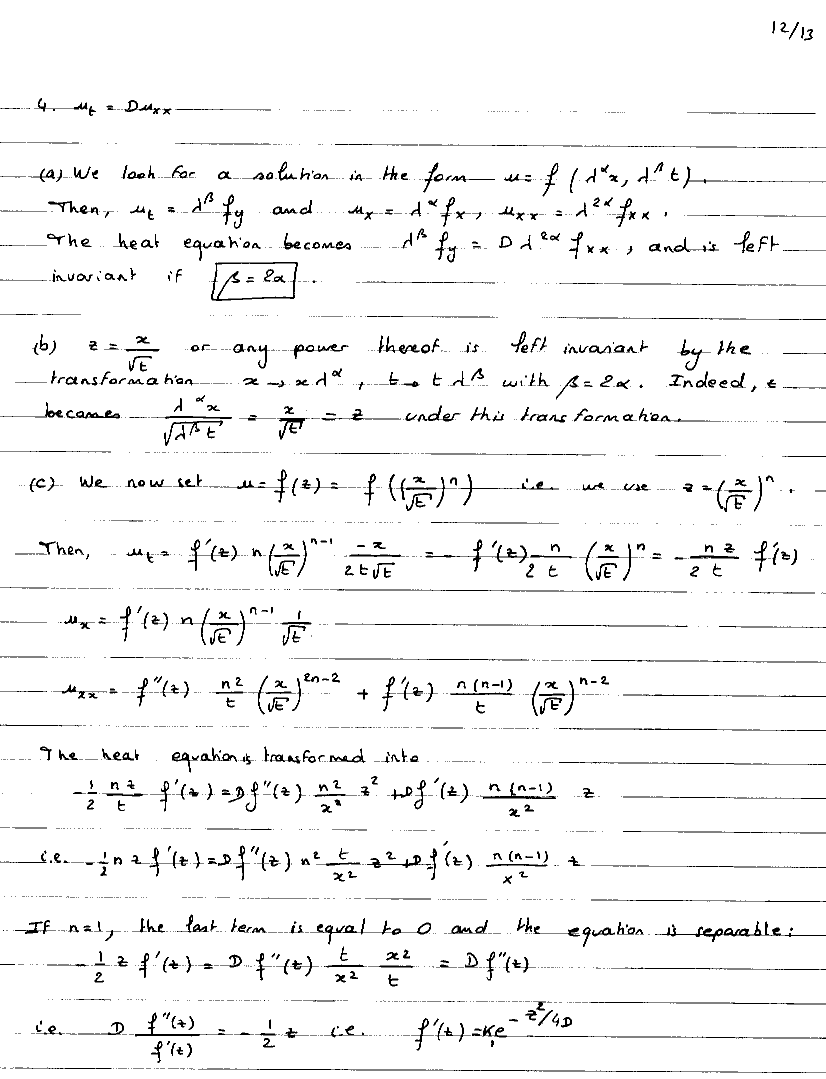 12/13
4. u_t = D u_xx
(a) We look for a solution in the form u = f (λ^α x, λ^β t).
Then, u_t = λ^β f_y and u_x = λ^α f_x, u_xx = λ^2α f_xx.
The heat equation becomes λ^β f_y = D λ^2α f_xx, and is left
invariant if β = 2α.
(b) z = x/√t or any power thereof is left invariant by the
transformation x → x λ^α, t → t λ^β with β = 2α. Indeed, z
becomes λ^α x/√(λ^β t) = x/√t = z under this transformation.
(c) We now set u = f(z) = f((x/√t)^n) i.e. we use z = (x/√t)^n.
Then, u_t = f'(z) n (x/√t)^(n-1) -x/(2t√t) = - f'(z) n/(2t) (x/√t)^n = - nz/(2t) f'(z)
u_x = f'(z) n (x/√t)^(n-1) 1/√t
u_xx = f''(z) n²/t (x/√t)^(2n-2) + f'(z) n(n-1)/t (x/√t)^(n-2)
The heat equation is transformed into
-1/2 nz/t f'(z) = D f''(z) n²/x² z² + D f'(z) n(n-1)/x² z
i.e. -1/2 n z f'(z) = D f''(z) n² t/x² z² + D f'(z) n(n-1)/x² z
If n=1, the last term is equal to 0 and the equation is separable:
-1/2 z f'(z) = D f''(z) t/x² x²/t = D f''(z)
i.e. D f''(z)/f'(z) = -1/2 z i.e. f'(z) = K₁e^(-z²/4D)